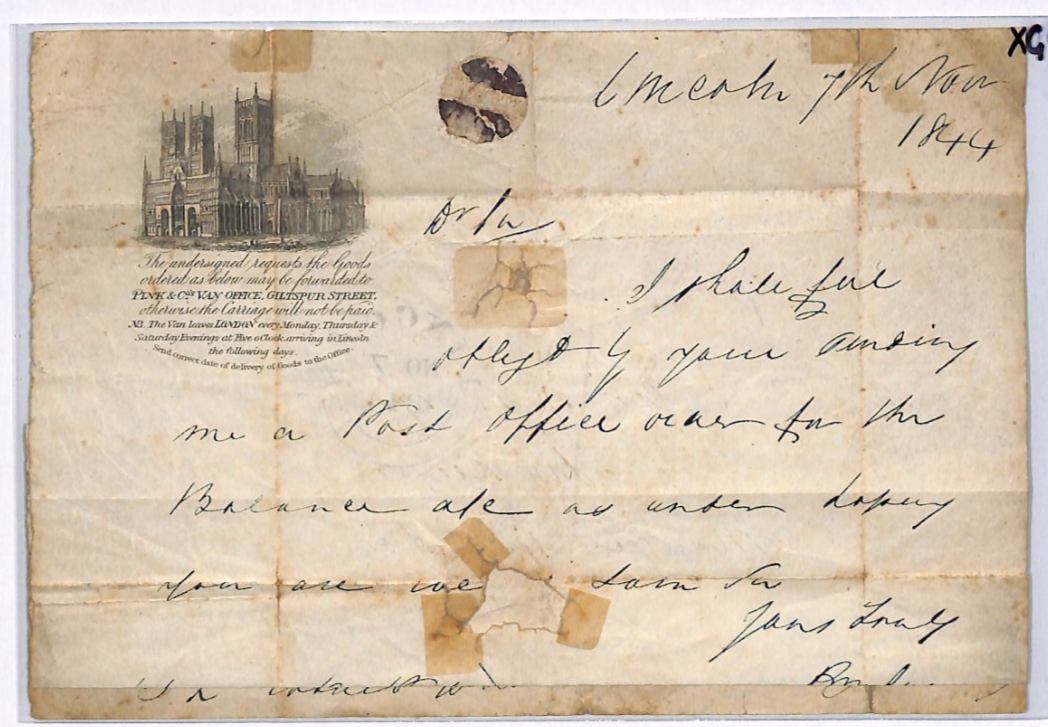 XG
Lincoln 7th Novr
1844
Dr Sir
The undersigned requests the Goods
ordered as below may be forwarded to
PINK & Cos. VAN OFFICE, GILTSPUR STREET,
otherwise the Carriage will not be paid.
NB. The Van leaves LONDON every Monday, Thursday &
Saturday Evenings at Five o'Clock, arriving in Lincoln
the following days.
Send correct date of delivery of Goods to the Office.
I shall feel
obligd by your sending
me a Post Office order for the
Balance a/c as under hoping
you are well I am Sir
Yours Truly